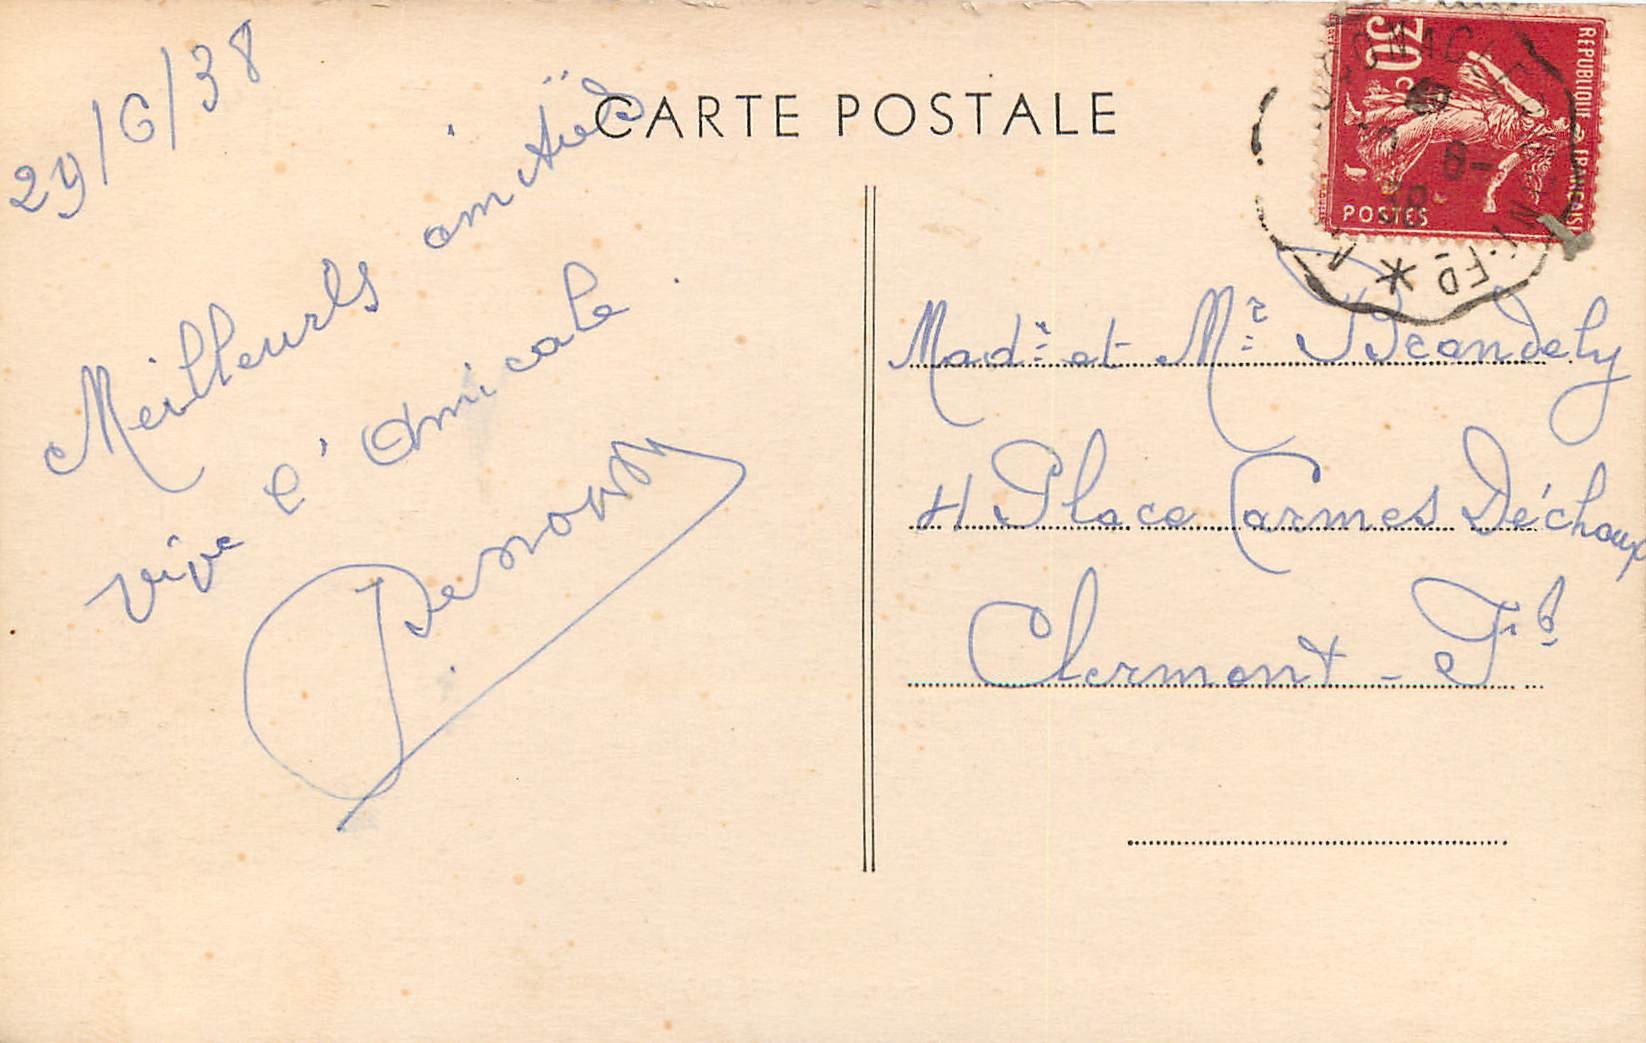 29/6/38
CARTE POSTALE
Meilleures amitiés
vive l'Amicale
30 c
REPUBLIQUE FRANÇAISE
POSTES
Madᵉ et Mʳ Brandely
4 Place Carmes Déchaux
Clermont - Fᵈ